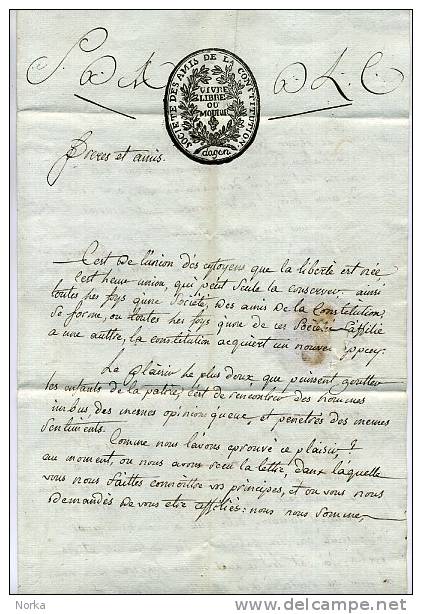 S D A D L C
SOCIETE DES AMIS DE LA CONSTITUTION
VIVRE
LIBRE
OU
MOURIR
dagen
freres et amis.
C'est de l'union des cytoyens que la liberté est née
c'est heux union, qui peut seule la conserver, ainsi
toutes les foys qu'une Societé, des amis de la Constitution,
se forme, ou toutes les foys qu'une de ces Societés s'affilie
a une auttre, la constitution acquiert un nouvel appuy.
Le plaisir le plus doux que puissent goutter
les enfants de la patrie, c'est de rencontrer des hommes
imbus, des mesmes opinion queux, et penetrés des memes
sentiments.
Comme nous lavons eprouvé ce plaisir,!
au moment, ou nous avons recu la lettre, dans laquelle
vous nous faittes connoittre vos principes, et ou vous nous
demandés de vous etre affiliés: nous nous somme,
Norka
www.delcampe.net